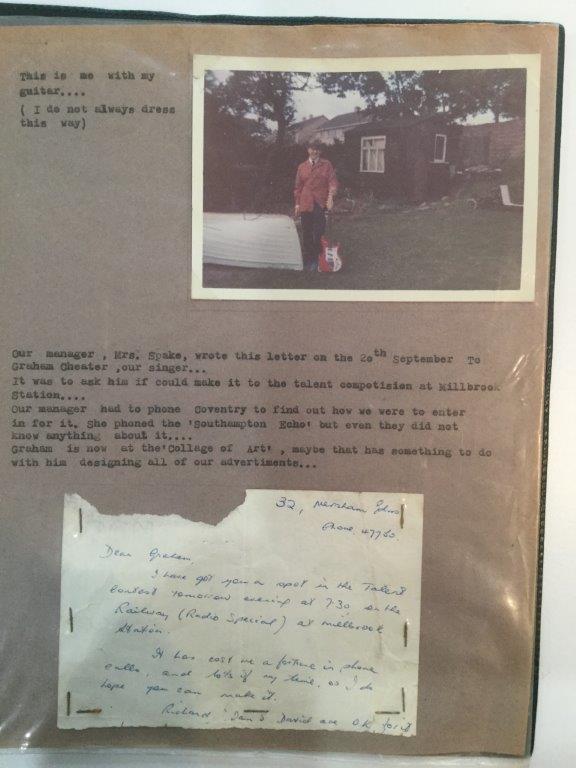 This is me with my
guitar....
( I do not always dress
this way)
Our manager , Mrs. Spake, wrote this letter on the 20th September To
Graham Cheater ,our singer...
It was to ask him if could make it to the talent compotision at Millbrook
Station....
Our manager had to phone Coventry to find out how we were to enter
in for it. She phoned the 'Southampton Echo' but even they did not
know anything about it....
Graham is now at the'Collage of Art' , maybe that has something to do
with him designing all of our advertiments...
32, Mersham Gdns
Phone. 47760.
Dear Graham,
I have got you a spot in the Talent
Contest tomorrow evening at 7.30 on the
Railway (Radio Special) at Millbrook
Station.
It has cost me a fortune in phone
calls, and lots of my time, so I do
hope you can make it.
Richard, Ian & David are O.K. for it